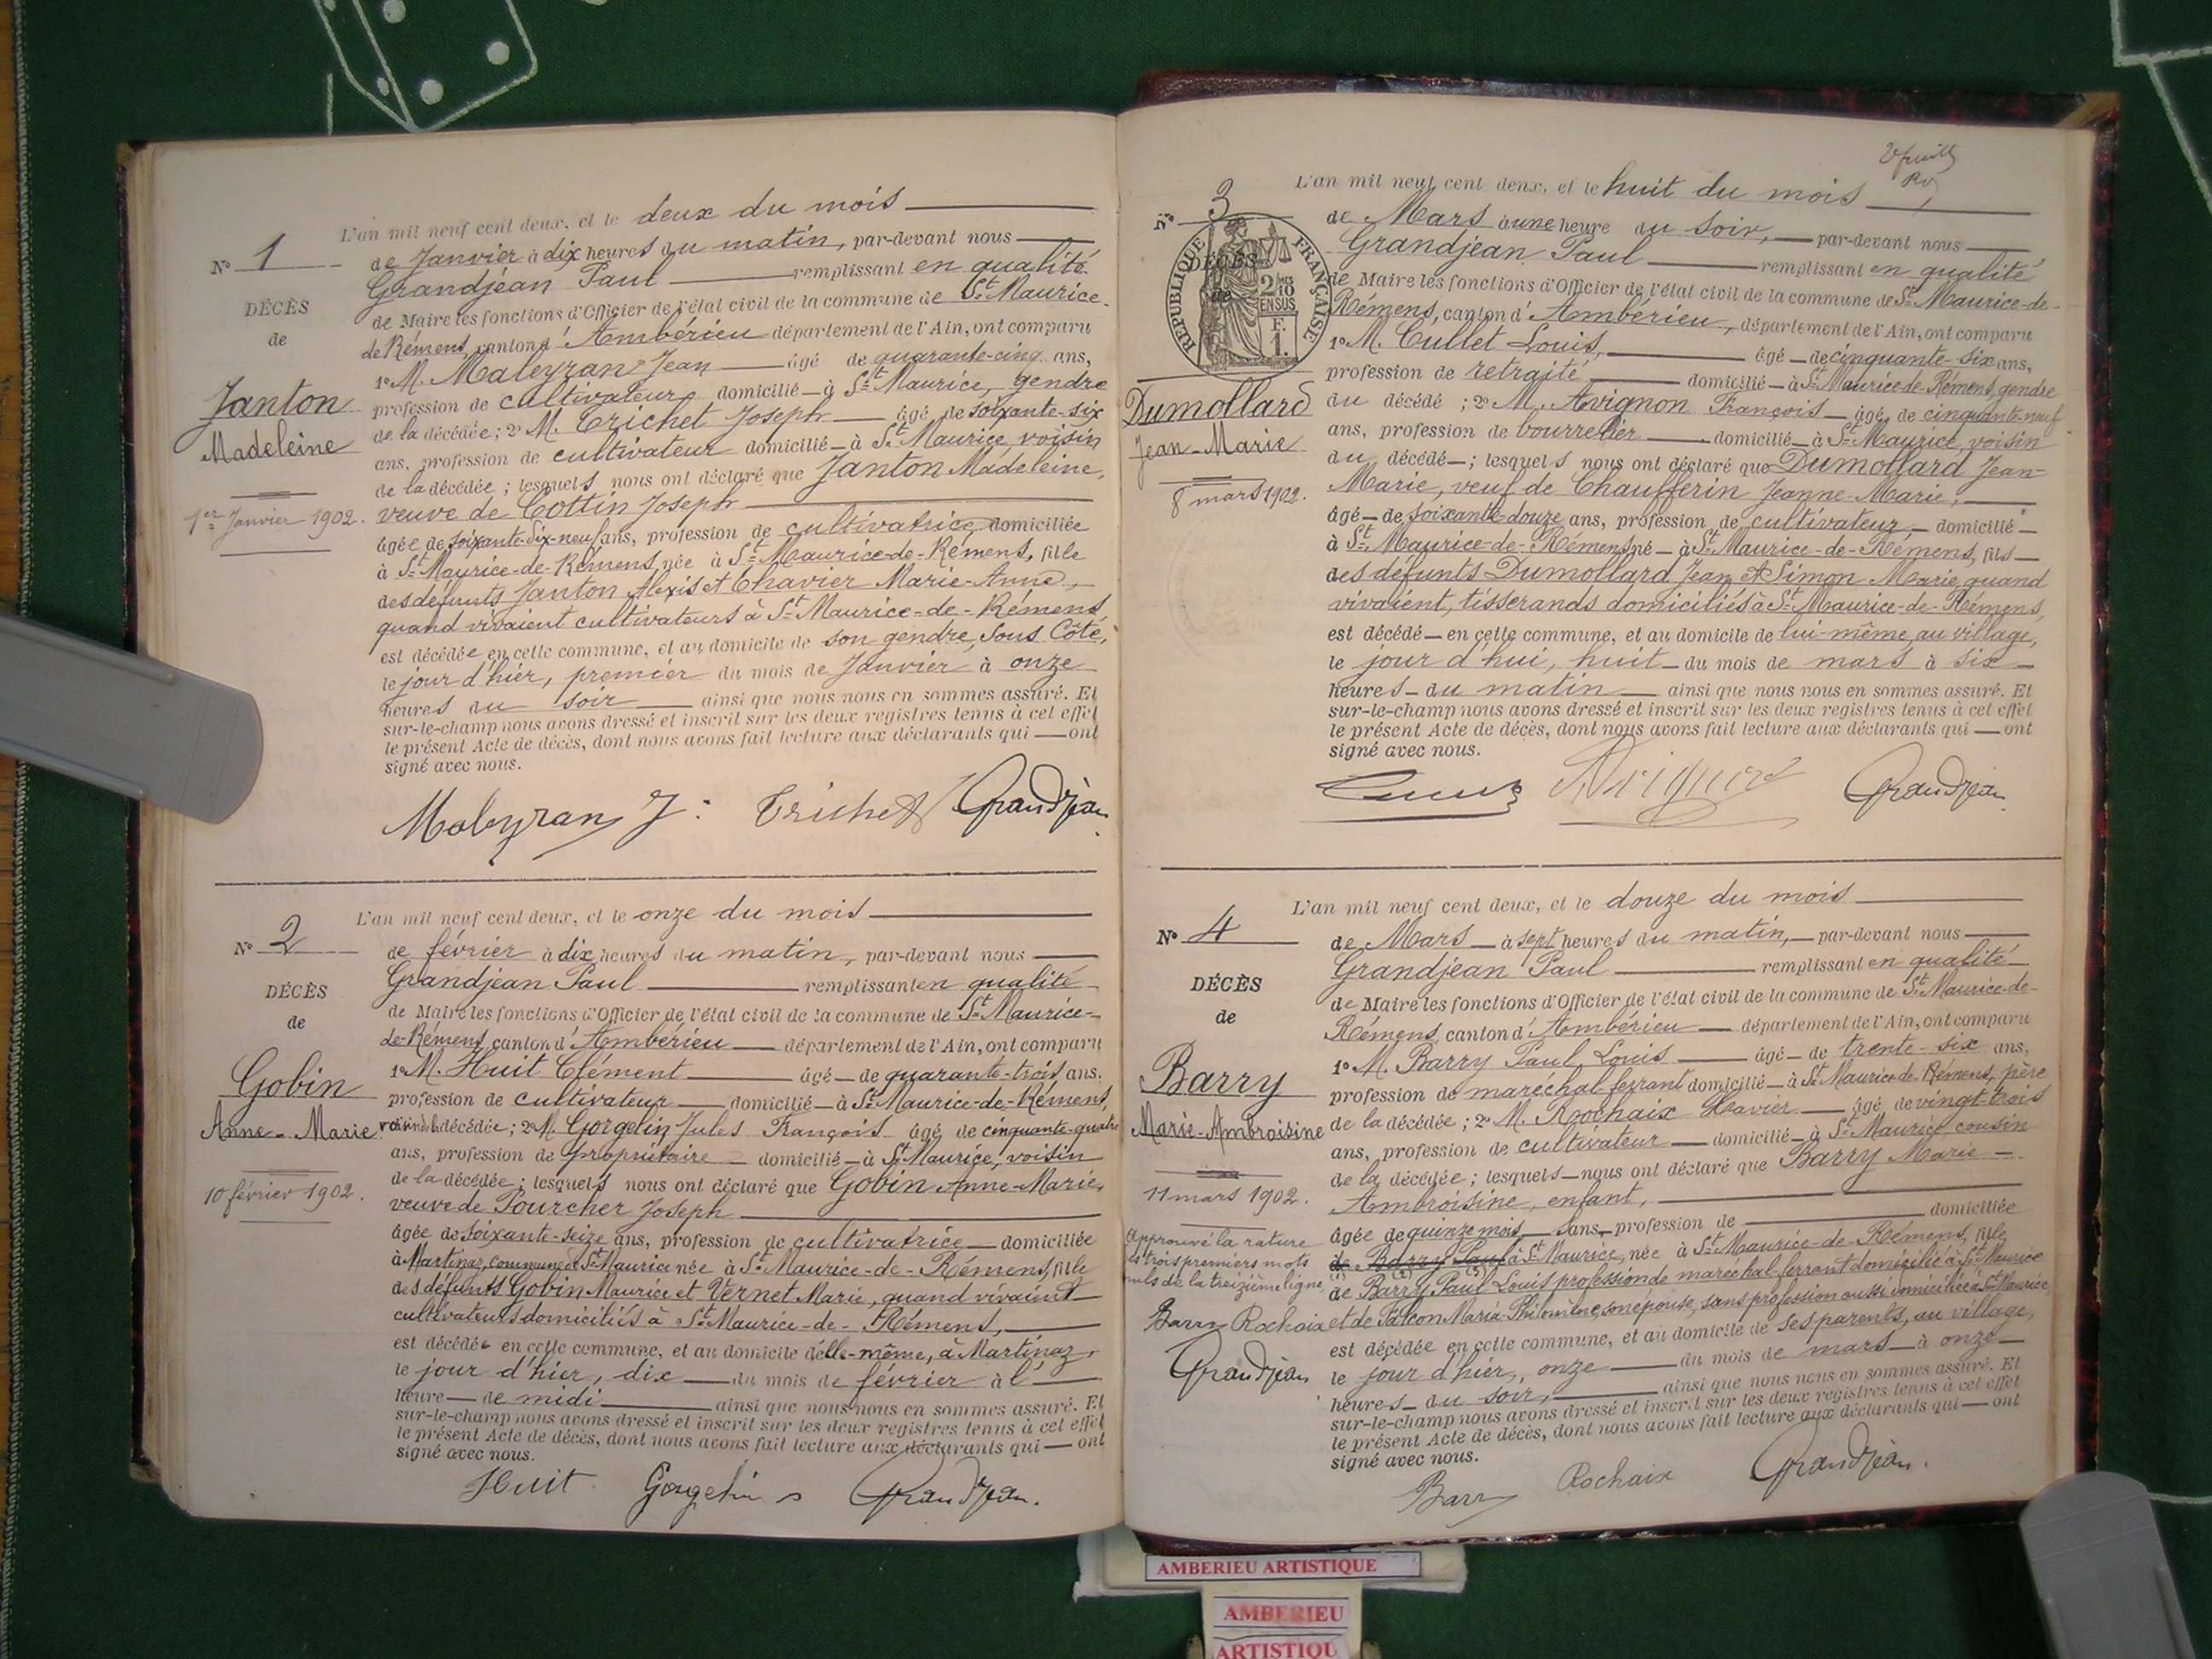 N° 1
DÉCÈS
de
Janton
Madeleine
1er Janvier 1902.
L'an mil neuf cent deux, et le deux du mois
de Janvier à dix heures du matin, par-devant nous
Grandjean Paul remplissant en qualité
de Maire les fonctions d'Officier de l'état civil de la commune de St Maurice-
de Rémens canton d'Ambérieu département de l'Ain, ont comparu
1° M. Maleyran Jean âgé de quarante-cinq ans,
profession de cultivateur domicilié à St Maurice, gendre
de la décédée; 2° M. Trichet Joseph âgé de soixante-six
ans, profession de cultivateur domicilié à St Maurice, voisin
de la décédée; lesquels nous ont déclaré que Janton Madeleine,
veuve de Cottin Joseph
âgée de soixante-dix-neuf ans, profession de cultivatrice, domiciliée
à St Maurice-de-Rémens, née à St Maurice-de-Rémens, fille
des défunts Janton Alexis et Chavier Marie-Anne,
quand vivaient cultivateurs à St Maurice-de-Rémens,
est décédée en cette commune, et au domicile de son gendre, Sous Côte,
le jour d'hier, premier du mois de Janvier à onze
heures du soir ainsi que nous nous en sommes assuré. Et
sur-le-champ nous avons dressé et inscrit sur les deux registres tenus à cet effet
le présent Acte de décès, dont nous avons fait lecture aux déclarants qui ont
signé avec nous.
Maleyran J: Trichet Grandjean
N° 2
DÉCÈS
de
Gobin
Anne-Marie
10 février 1902.
L'an mil neuf cent deux, et le onze du mois
de février à dix heures du matin, par-devant nous
Grandjean Paul remplissant en qualité
de Maire les fonctions d'Officier de l'état civil de la commune de St Maurice-
de-Rémens canton d'Ambérieu département de l'Ain, ont comparu
1° M. Huit Clément âgé de quarante-trois ans.
profession de cultivateur domicilié à St Maurice-de-Rémens,
voisin de la décédée; 2° M. Gorgelin Jules François âgé de cinquante-quatre
ans, profession de propriétaire domicilié à St Maurice, voisin
de la décédée; lesquels nous ont déclaré que Gobin Anne-Marie,
veuve de Pourcher Joseph
âgée de soixante-seize ans, profession de cultivatrice domiciliée
à Martinaz, commune de St Maurice née à St Maurice-de-Rémens, fille
des défunts Gobin Maurice et Vernet Marie, quand vivaient
cultivateurs domiciliés à St Maurice-de-Rémens,
est décédée en cette commune, et au domicile d'elle-même, à Martinaz,
le jour d'hier, dix du mois de février à l'
heure de midi ainsi que nous nous en sommes assuré. Et
sur-le-champ nous avons dressé et inscrit sur les deux registres tenus à cet effet
le présent Acte de décès, dont nous avons fait lecture aux déclarants qui ont
signé avec nous.
Huit Gorgelin Grandjean.
N° 3
DÉCÈS
de
RÉPUBLIQUE FRANÇAISE
2/10 EN SUS
F. 1.
Dumollard
Jean-Marie
8 mars 1902.
L'an mil neuf cent deux, et le huit du mois
de Mars à une heure du soir, par-devant nous
Grandjean Paul remplissant en qualité
de Maire les fonctions d'Officier de l'état civil de la commune de St Maurice-de-
Rémens, canton d'Ambérieu, département de l'Ain, ont comparu
1° M. Cullet Louis, âgé de cinquante-six ans,
profession de retraité domicilié à St Maurice-de-Rémens, gendre
du décédé; 2° M. Avignon François âgé de cinquante-neuf
ans, profession de bourrelier domicilié à St Maurice, voisin
du décédé; lesquels nous ont déclaré que Dumollard Jean-
Marie, veuf de Chaufferin Jeanne-Marie,
âgé de soixante-douze ans, profession de cultivateur domicilié
à St Maurice-de-Rémens né à St Maurice-de-Rémens, fils
des défunts Dumollard Jean et Simon Marie, quand
vivaient, tisserands domiciliés à St Maurice-de-Rémens,
est décédé en cette commune, et au domicile de lui-même, au village,
le jour d'hui, huit du mois de mars à six
heures du matin ainsi que nous nous en sommes assuré. Et
sur-le-champ nous avons dressé et inscrit sur les deux registres tenus à cet effet
le présent Acte de décès, dont nous avons fait lecture aux déclarants qui ont
signé avec nous.
Avignon Grandjean
N° 4
DÉCÈS
de
Barry
Marie-Ambroisine
11 mars 1902.
Approuvé la rature
des trois premiers mots
nuls de la treizième ligne
Barry Rochaix
Grandjean
L'an mil neuf cent deux, et le douze du mois
de Mars à sept heures du matin, par-devant nous
Grandjean Paul remplissant en qualité
de Maire les fonctions d'Officier de l'état civil de la commune de St Maurice-de-
Rémens canton d'Ambérieu département de l'Ain, ont comparu
1° M. Barry Paul Louis âgé de trente-six ans,
profession de maréchal-ferrant domicilié à St Maurice-de-Rémens, père
de la décédée; 2° M. Rochaix Xavier âgé de vingt-trois
ans, profession de cultivateur domicilié à St Maurice, cousin
de la décédée; lesquels nous ont déclaré que Barry Marie-
Ambroisine, enfant,
âgée de quinze mois sans profession de domiciliée
de Barry Paul à St Maurice, née à St Maurice-de-Rémens, fille
de Barry Paul-Louis profession de maréchal-ferrant domicilié à St Maurice
et de Falcon Maria-Philomène, son épouse, sans profession aussi domiciliée à St Maurice,
est décédée en cette commune, et au domicile de ses parents, au village,
le jour d'hier, onze du mois de mars à onze
heures du soir, ainsi que nous nous en sommes assuré. Et
sur-le-champ nous avons dressé et inscrit sur les deux registres tenus à cet effet
le présent Acte de décès, dont nous avons fait lecture aux déclarants qui ont
signé avec nous.
Barry Rochaix Grandjean.
AMBERIEU ARTISTIQUE
AMBERIEU
ARTISTIQU